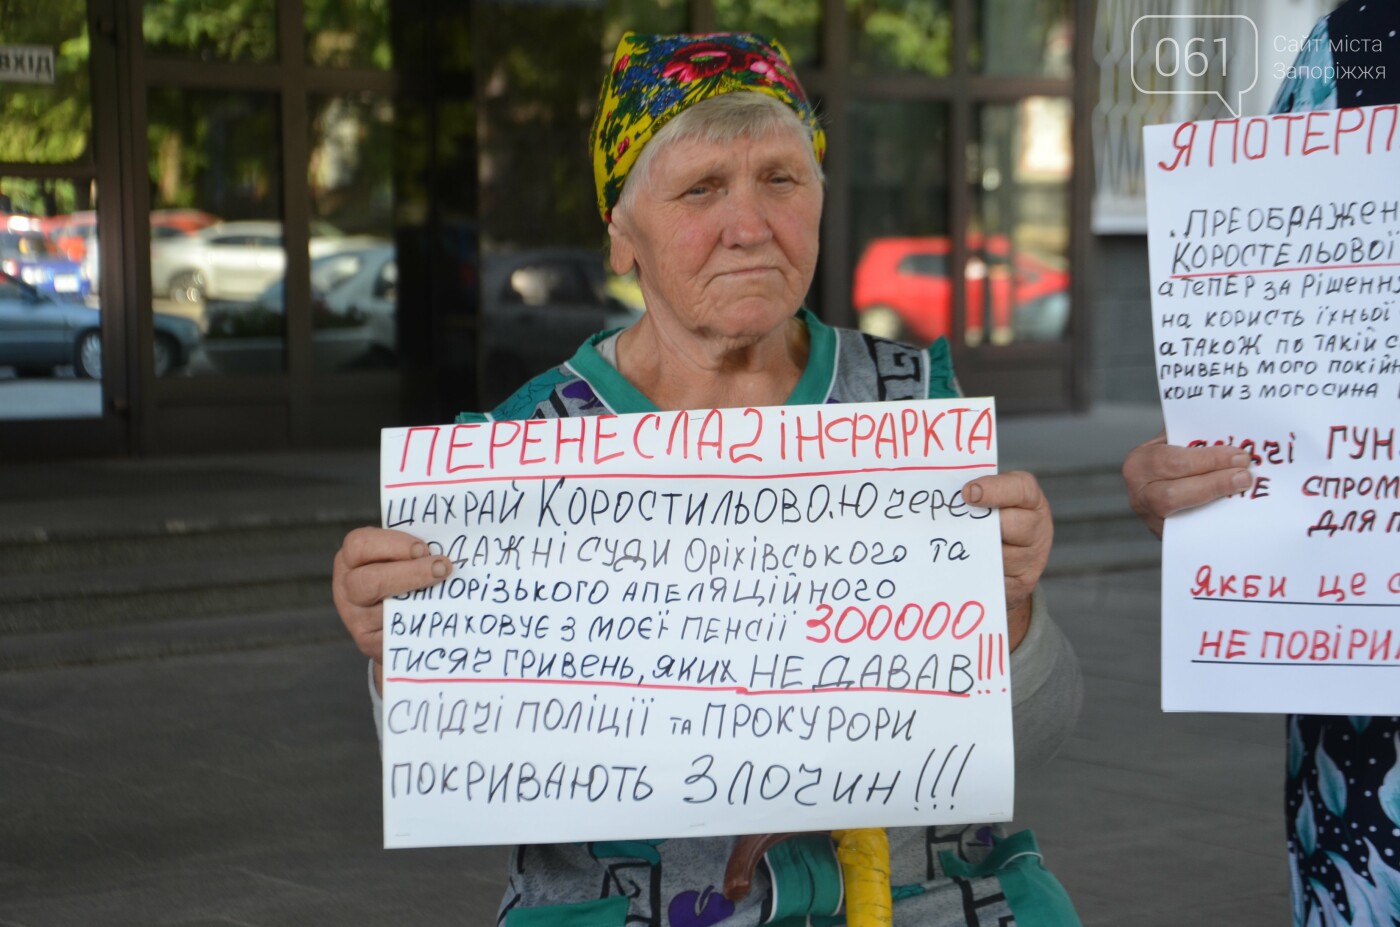 ВХІД
061
Сайт міста
Запоріжжя
ПЕРЕНЕСЛА 2 ІНФАРКТА
ШАХРАЙ КОРОСТИЛЬОВО.Ю через
ОДАЖНІ СУДИ ОРІХІВСЬКОГО ТА
АПЕЛЯЦІЙНОГО
ВИРАХОВУЄ З МОЄЇ ПЕНСІЇ 300000
ТИСЯЧ ГРИВЕНЬ, ЯКИХ НЕ ДАВАВ!!!
СЛІДЧІ ПОЛІЦІЇ ТА ПРОКУРОРИ
ПОКРИВАЮТЬ ЗЛОЧИН!!!
Я ПОТЕРП
.ПРЕОБРАЖЕН
КОРОСТЕЛЬОВОЇ
А ТЕПЕР ЗА РІШЕНН
НА КОРИСТЬ ЇХНЬОЇ
А ТАКОЖ ПО ТАКІЙ С
ПРИВЕНЬ МОГО ПОКІЙН
КОШТИ З МОГО СИНА
ГУН
НЕ СПРОМ
ДЛЯ П
ЯКБИ ЦЕ
НЕ ПОВІРИ